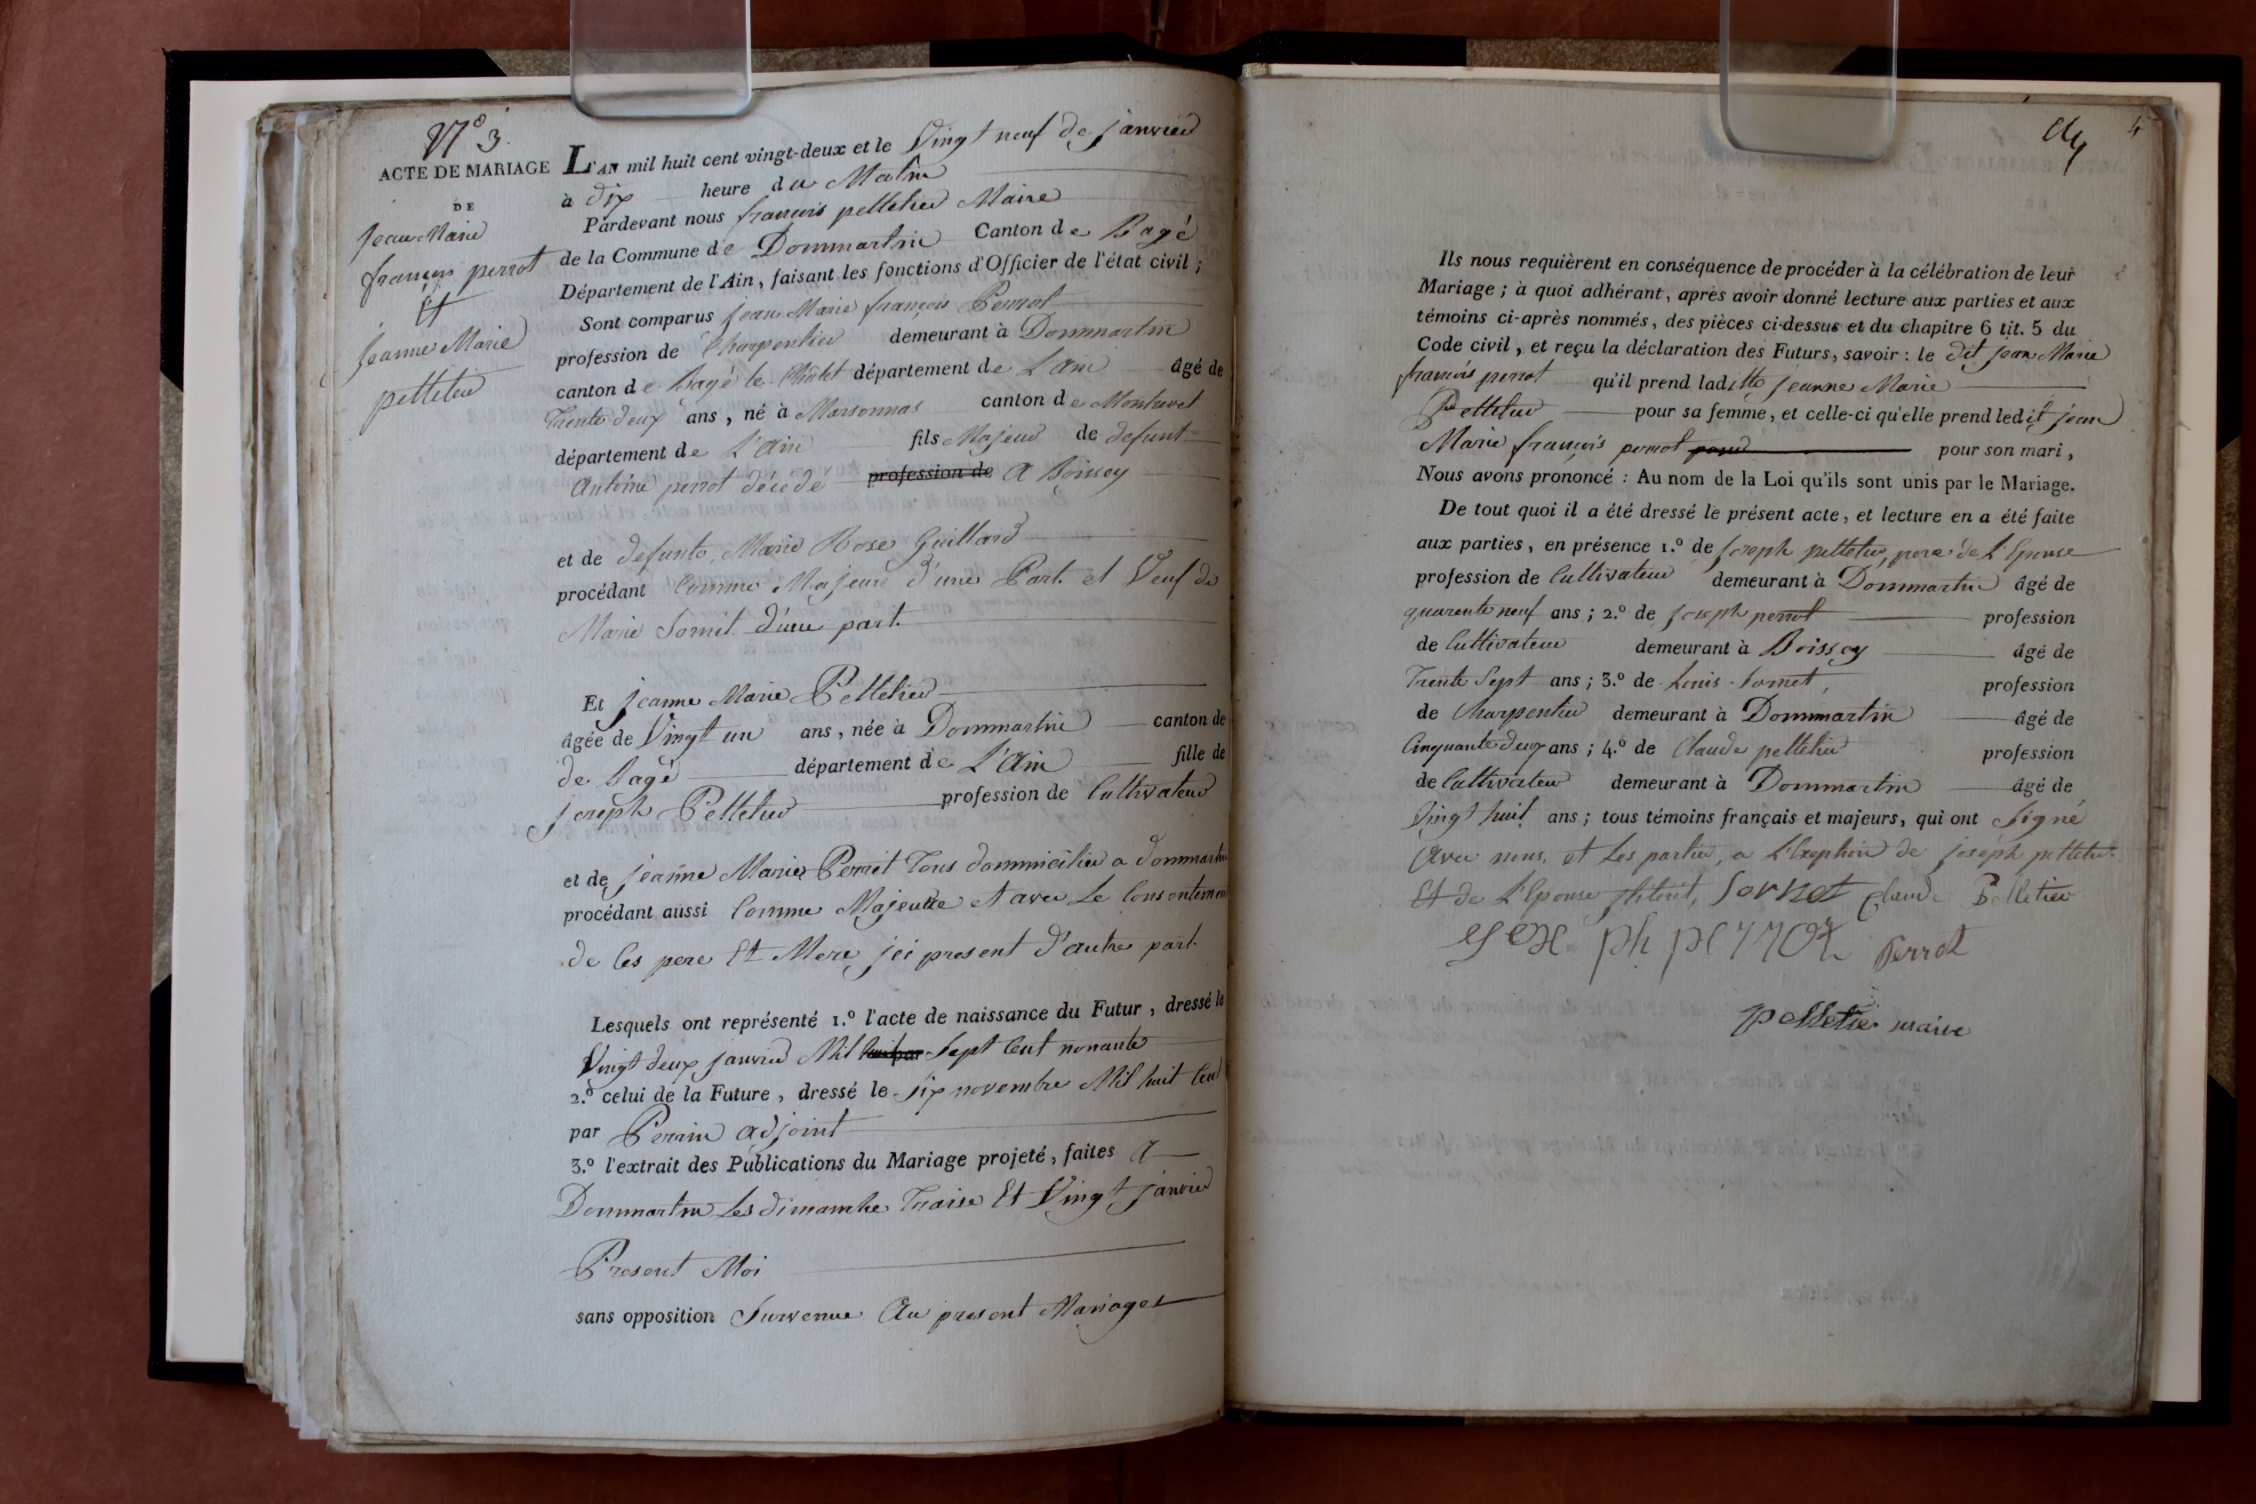 N° 3.
ACTE DE MARIAGE
DE
Jean Marie
françois perrot
Et
Jeanne Marie
pelletier
L'AN mil huit cent vingt-deux et le Vingt neuf de janvier
à dix heure du Matin
Pardevant nous françois pelletier Maire
de la Commune de Dommartin Canton de Bagé
Département de l'Ain, faisant les fonctions d'Officier de l'état civil;
Sont comparus jean Marie françois Perrot
profession de Charpentier demeurant à Dommartin
canton de Bagé le Châtel département de L'ain âgé de
Trente deux ans, né à Marsonnas canton de Montrevel
département de L'ain fils Majeur de defunt
Antoine perrot décédé profession de A Boissey
et de defunte Marie Rose Guillard
procédant Comme Majeure d'une Part et Veuf de
Marie Sornet d'une part.
Et jeanne Marie Pelletier
âgée de Vingt un ans, née à Dommartin canton de
de Bagé département de L'ain fille de
joseph Pelletier profession de Cultivateur
et de jeanne Marie Perret Tous dommicilié a dommartin
procédant aussi Comme Majeure et avec Le Consentement
de Ces pere Et Mere ici present d'autre part
Lesquels ont représenté 1.º l'acte de naissance du Futur, dressé le
Vingt deux janvier Mil Sept Cent nonante
2.º celui de la Future, dressé le Six novembre Mil huit Cent
par Perrin adjoint
3.º l'extrait des Publications du Mariage projeté, faites A
Dommartin Les dimanche Traise Et Vingt janvier
Present Moi
sans opposition Survenue Au present Mariage
4
Ils nous requièrent en conséquence de procéder à la célébration de leur
Mariage; à quoi adhérant, après avoir donné lecture aux parties et aux
témoins ci-après nommés, des pièces ci-dessus et du chapitre 6 tit. 5 du
Code civil, et reçu la déclaration des Futurs, savoir: le dit jean Marie
francois perrot qu'il prend laditte jeanne Marie
Pelletier pour sa femme, et celle-ci qu'elle prend ledit jean
Marie françois perrot pour son mari,
Nous avons prononcé: Au nom de la Loi qu'ils sont unis par le Mariage.
De tout quoi il a été dressé le présent acte, et lecture en a été faite
aux parties, en présence 1.º de joseph pelletier, pere de L'Epouse
profession de Cultivateur demeurant à Dommartin âgé de
quarente neuf ans; 2.º de joseph perrot profession
de Cultivateur demeurant à Boissey âgé de
Trente Sept ans; 3.º de Louis Sornet, profession
de Charpentier demeurant à Dommartin âgé de
Cinquante deux ans; 4.º de Claude pelletier profession
de Cultivateur demeurant à Dommartin âgé de
Vingt huit ans; tous témoins français et majeurs, qui ont Signé
Avec nous et Les parties, a L'Exeption de joseph pelletier
Et de L'Epouse Sornet Claude Pelletier
perrot Perrot
pelletier maire